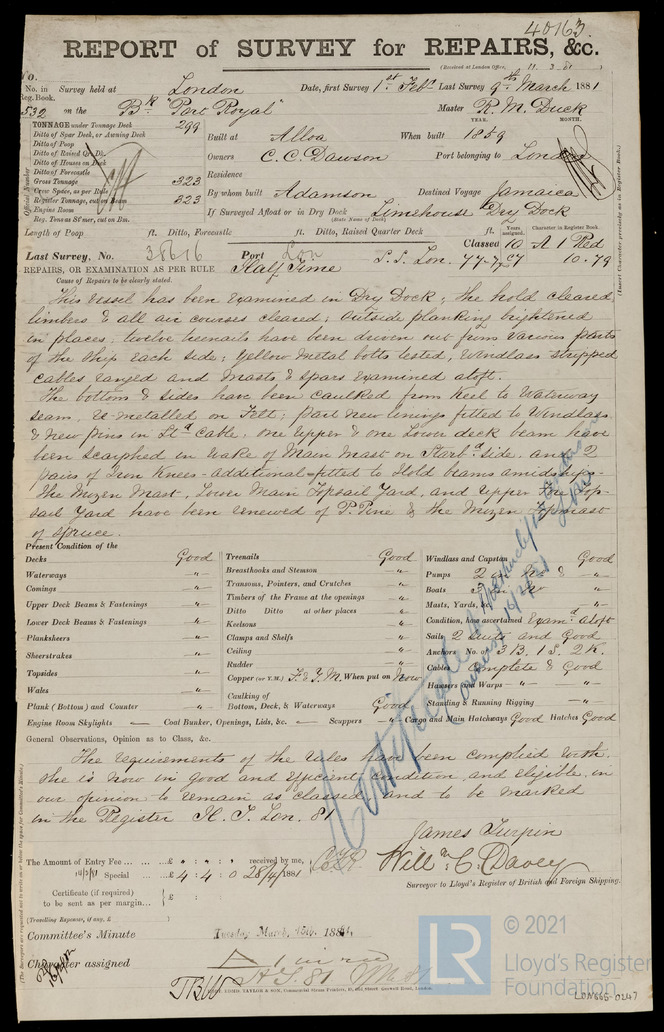 40163
REPORT of SURVEY for REPAIRS, &c.
(Received at London Office, 11. 3. 81)
No. in Reg. Book. Survey held at London Date, first Survey 1st Feby Last Survey 9th March 1881
532 on the Bk "Port Royal" Master R. M. Duck
TONNAGE under Tonnage Deck 299
YEAR. MONTH.
Ditto of Spar Deck, or Awning Deck
Built at Alloa When built 1859
Ditto of Poop
Ditto of Raised Qr. Dk.
Owners C. C. Dawson Port belonging to London
Ditto of Houses on Deck
Ditto of Forecastle
Residence
Gross Tonnage 323
Crew Space, as per Rule
By whom built Adamson Destined Voyage Jamaica
Register Tonnage, cut on Beam 323
Engine Room
If Surveyed Afloat or in Dry Dock Limehouse Dry Dock
(State Name of Dock)
Reg. Tons as St'mer, cut on Bm.
Official Number
Length of Poop ft. Ditto, Forecastle ft. Ditto, Raised Quarter Deck ft.
Years assigned. Character in Register Book.
Classed 10 A 1 Red
Last Survey, No. 38616 Port Lon
S.S. Lon. 77-7 10-79
REPAIRS, OR EXAMINATION AS PER RULE Half Time
Cause of Repairs to be clearly stated.
(Insert Character precisely as in Register Book.)
This Vessel has been examined in Dry Dock; the hold cleared,
limbers & all air courses cleared; outside planking brightened
in places; twelve treenails have been driven out from various parts
of the ship each side; yellow metal bolts tested, windlass stripped
cables ranged and masts & spars examined aloft.
The bottom & sides have been caulked from keel to Waterway
seam, re-metalled on Felt; part new linings fitted to Windlass
& new pins in Std cable; one upper & one Lower deck beam have
been scarphed in wake of Main Mast on Starbd side, and 2
pairs of Iron Knees - additional - fitted to Hold beams amidships.
The Mizen Mast, Lower Main Topsail Yard, and Upper Fore Top-
sail Yard have been renewed of P. Pine & the Mizen Topmast
of Spruce.
Present Condition of the
Decks Good
Waterways "
Comings "
Upper Deck Beams & Fastenings "
Lower Deck Beams & Fastenings "
Planksheers "
Sheerstrakes "
Topsides "
Wales "
Plank (Bottom) and Counter "
Treenails Good
Breasthooks and Stemson "
Transoms, Pointers, and Crutches "
Timbers of the Frame at the openings "
Ditto Ditto at other places "
Keelsons "
Clamps and Shelfs "
Ceiling "
Rudder "
Copper (or Y.M.) F. & Y.M. When put on Now
Caulking of
Bottom, Deck, & Waterways Good
Windlass and Capstan Good
Pumps 2 "
Boats 3 "
Masts, Yards, "
Condition, how ascertained Examd aloft
Sails 2 suits and Good
Anchors No. of 3 B. 1 S. 2 K.
Cables complete & Good
Hawsers and Warps " "
Standing & Running Rigging "
Engine Room Skylights — Coal Bunker, Openings, Lids, &c. — Scuppers " Cargo and Main Hatchways Good Hatches Good
General Observations, Opinion as to Class, &c.
The requirements of the rules have been complied with.
She is now in good and efficient condition, and eligible, in
our opinion to remain as classed and to be marked
in the Register H. T. Lon. 81
James Turpin
Will m. C. Davey
Surveyor to Lloyd's Register of British and Foreign Shipping.
The Amount of Entry Fee ... £ " : " : " received by me,
Special ... £ 4 : 4 : 0 28/4/1881
Certificate (if required)
to be sent as per margin... £ :
(Travelling Expenses, if any, £ )
Committee's Minute Tuesday March, 15th, 1881.
Character assigned A 1 in red
H T. 81
COX, TAYLOR & SON, Commercial Steam Printers
© 2021
LR
Lloyd's Register
Foundation
LON666-0247